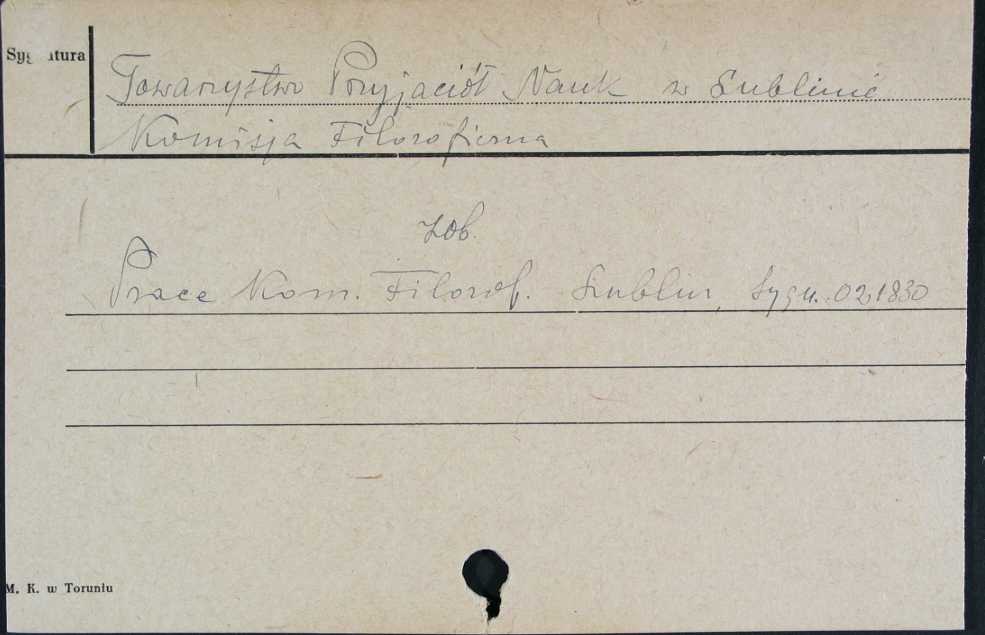 Sygnatura
Towarzystwo Przyjaciół Nauk w Lublinie
Komisja Filozoficzna
zob.
Prace Kom. Filozof. Lublin, Sygn. 021830
M. K. w Toruniu